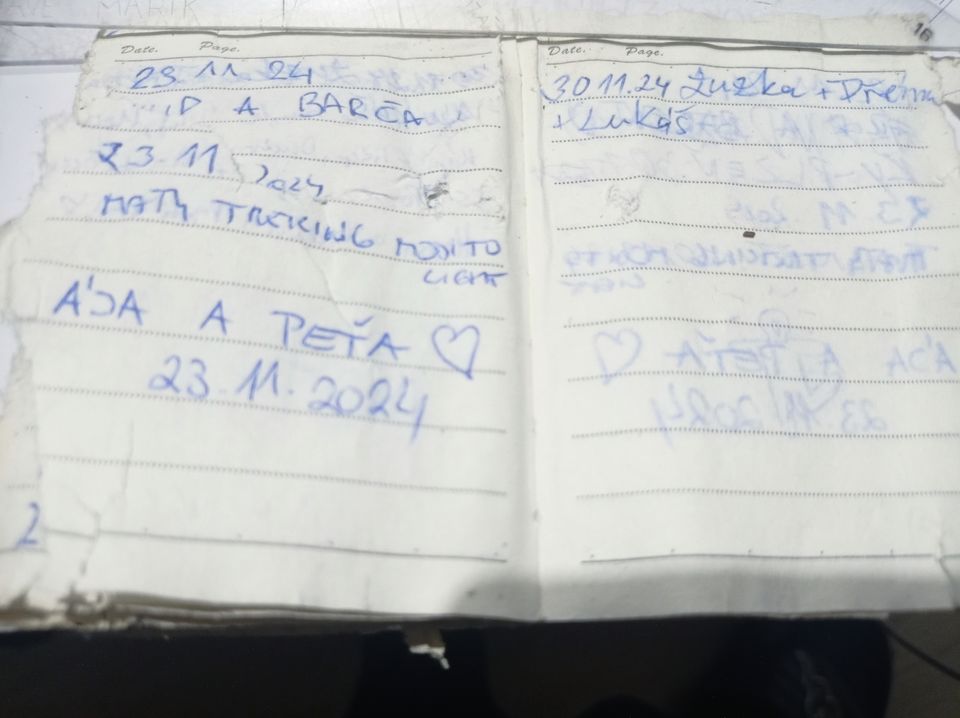 16
Date. Page.
23 11 24
A BARČA
23.11 2024
MATY TREKING MOJITO
LIGHT
ÁJA A PEŤA ♡
23.11.2024
2
Date. Page.
30 11.24 Zuzka +
+ Lukáš